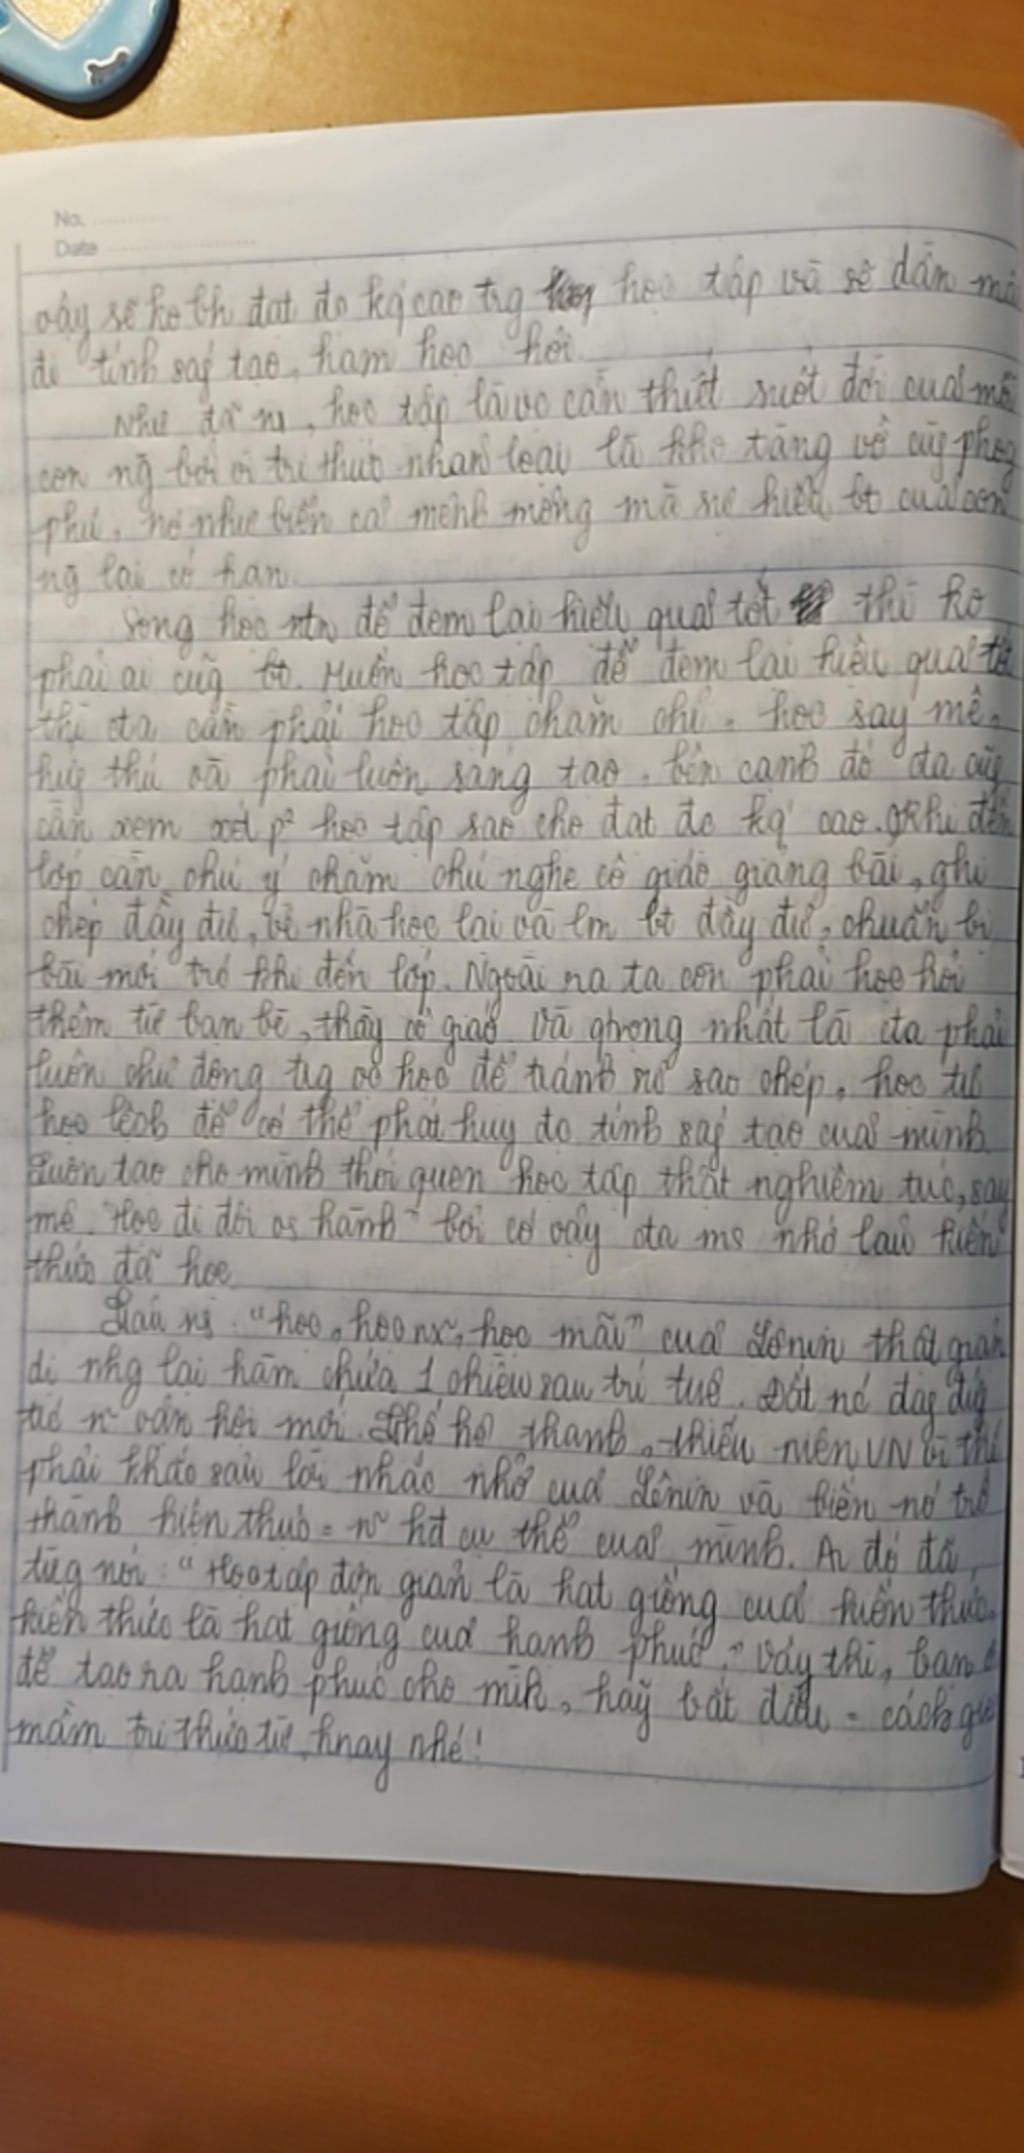 No.
Date
vậy sẽ ko th đạt đc kq cao trg học tập và sẽ dần mà
đi tính ság tạo, ham học hỏi.
Như đã ns, học tập là vc cần thiết suốt đời của mỗi
con ng bởi vì tri thức nhân loại là kho tàng vô cùg phog
phú, nó như biển cả mênh mông mà sự hiểu bt của con
ng lại có hạn.
Song học ntn để đem lại hiệu quả tốt thì ko
phải ai cũg bt. Muốn học tập để đem lại hiệu quả tốt
thì cta cần phải học tập chăm chỉ, học say mê,
hứg thú và phải luôn sáng tạo, bên cạnh đó cta cũg
cần xem xét p² học tập sao cho đạt đc kq cao. Khi đến
lớp cần chú ý chăm chú nghe cô giáo giảng bài, ghi
chép đầy đủ, về nhà học lại và lm bt đầy đủ, chuẩn bị
bài mới trc khi đến lớp. Ngoài ra ta còn phải học hỏi
thêm từ bạn bè, thầy cô giáo và qtrọng nhất là cta phải
luôn chủ động trg vc học để tránh sao chép, học tủ
học lệch để có thể phát huy đc tính ság tạo của mình.
Luôn tạo cho mình thói quen học tập thật nghiêm túc, say
mê. "Học đi đôi vs hành" bởi có vậy cta ms nhớ lâu kiến
thức đã học.
Câu ns "học, học nx, học mãi" của Lênin thật giản
dị nhg lại hàm chứa 1 chiều sâu trí tuệ. Đất nc đag đứg
trc n~ vận hội mới. Thế hệ thanh, thiếu niên VN vì thế
phải khắc sâu lời nhắc nhở của Lênin và biến nó trở
thành hiện thực = n~ hđ cụ thể của mình. Ai đó đã
từg nói: "Học tập đơn giản là hạt giống của kiến thức,
kiến thức là hạt giống của hạnh phúc." Vậy thì, bạn
để tạo ra hạnh phúc cho mìh, hãy bắt đầu = cách gieo
mầm tri thức từ hnay nhé!